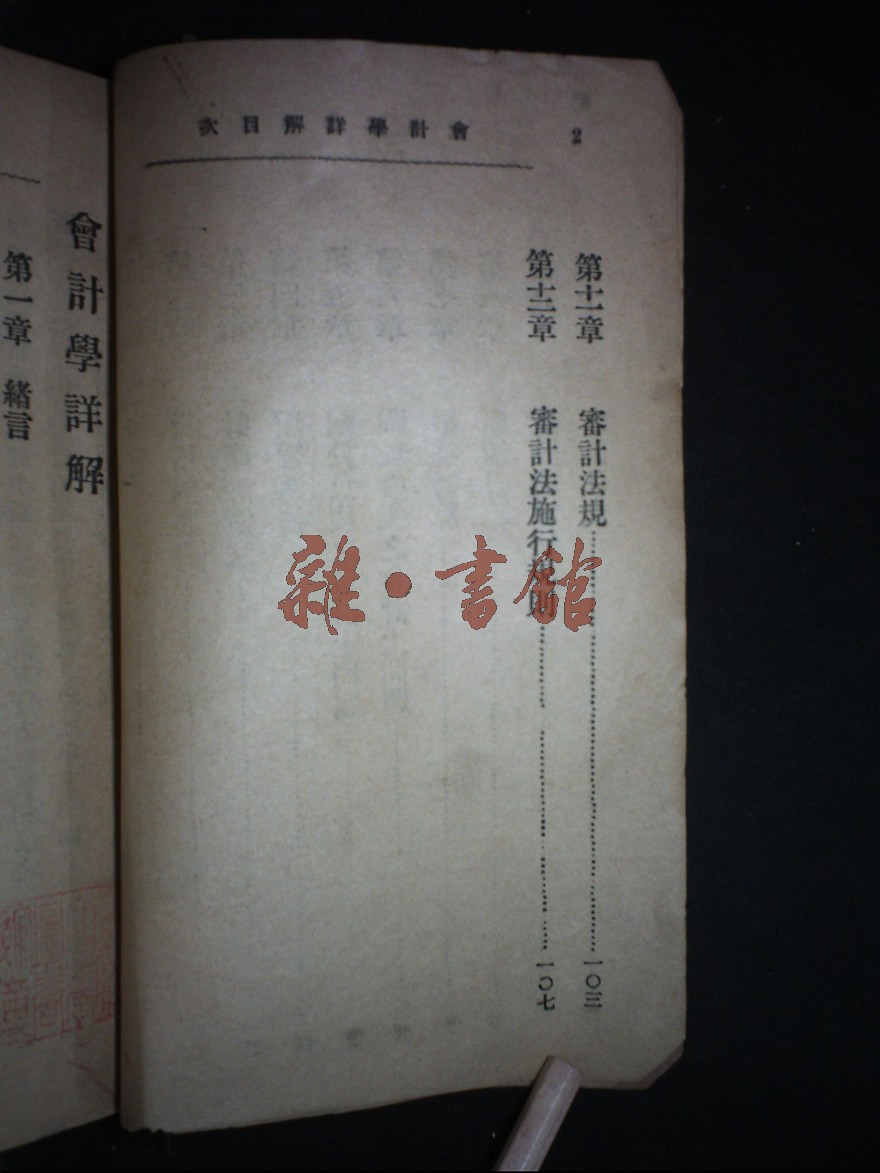 會計學詳解目次 2
第十一章 審計法規…………一〇三
第十二章 審計法施行規則…………一〇七
會計學詳解
第一章 緒言
雜·書館